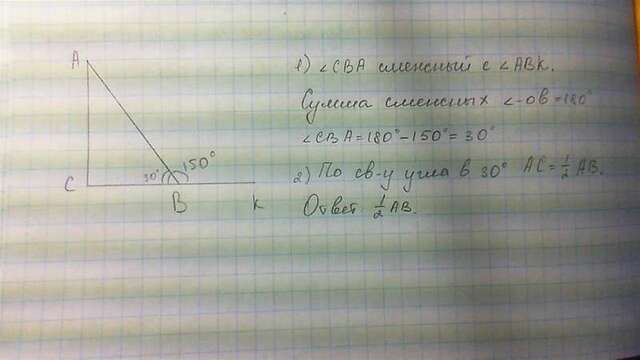 A
C
30°
150°
B
K
1) ∠CBA смежный с ∠ABK.
Сумма смежных ∠-ов = 180°
∠CBA = 180° - 150° = 30°
2) По св-у угла в 30° AC = 1/2 AB.
Ответ 1/2 AB.